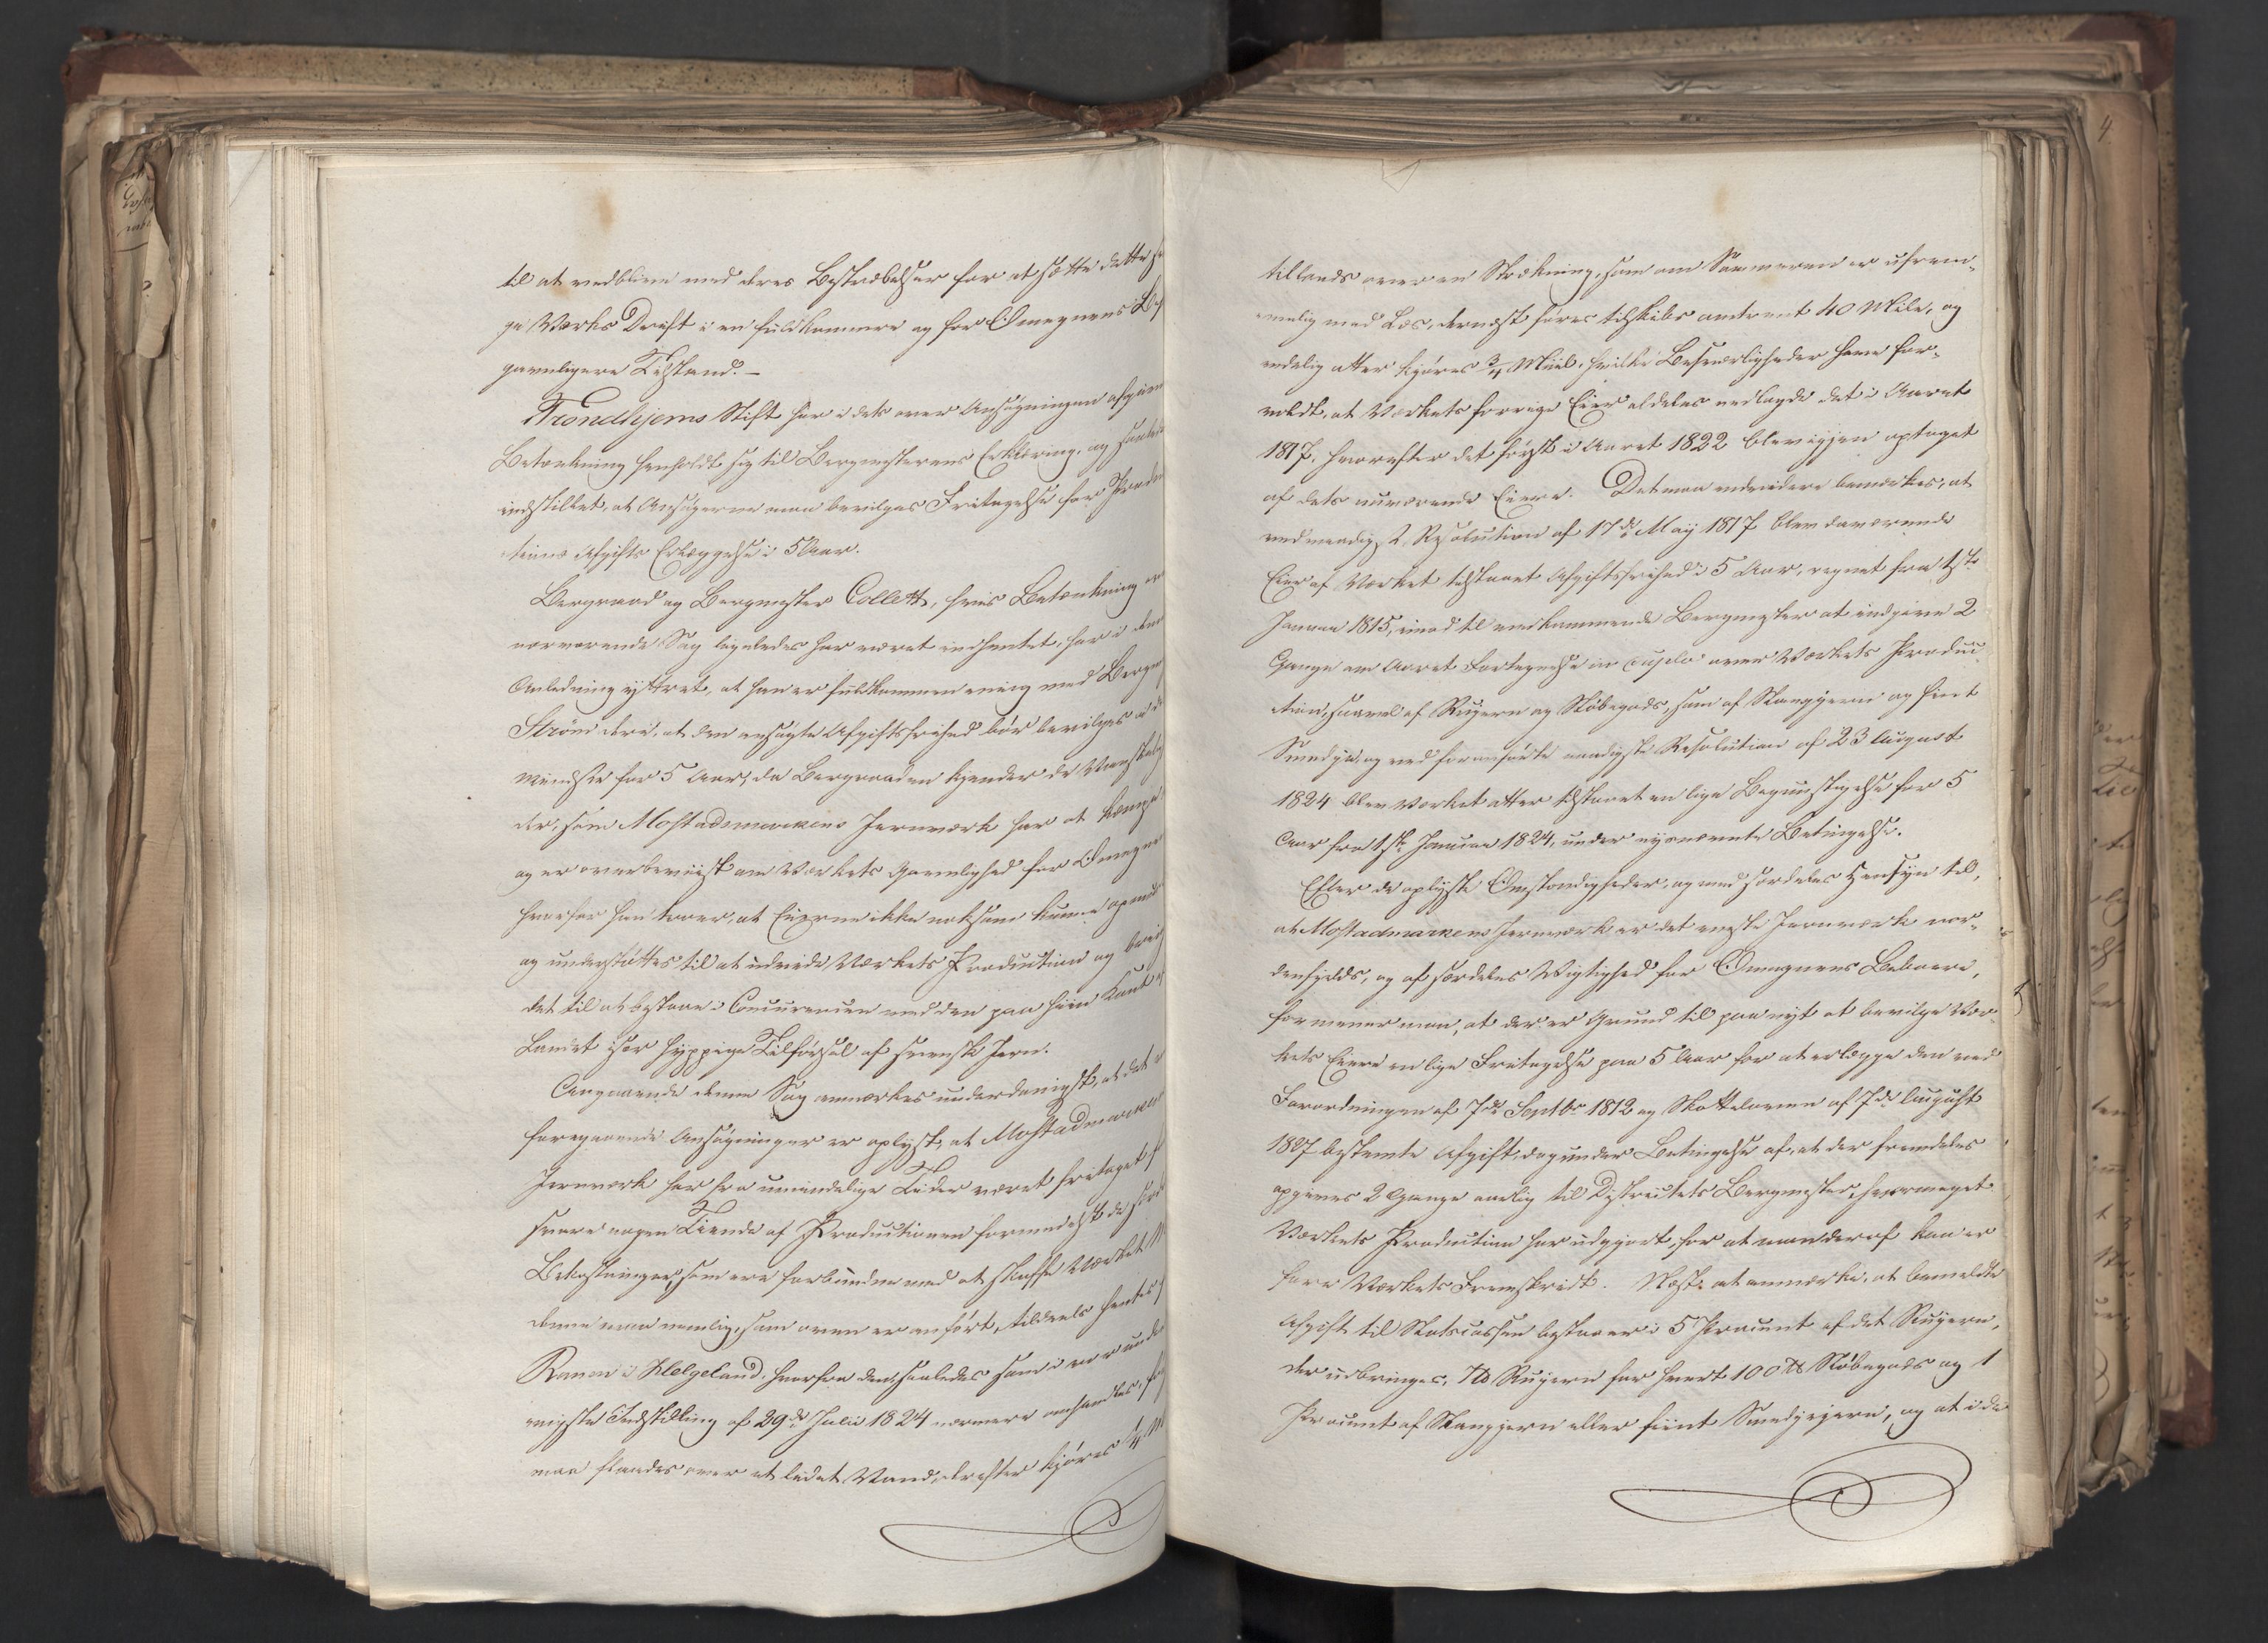 til at vedblive med deres Bestræbelser for at sætte dette
ge Værks Drift i en fuldkomnere og for Omegnens
gavnligere Tilstand. –
Trondhjems Stift har i dets over Ansøgningen afgivne
Betænkning henholdt sig til Bergmesterens Erklæring, og
indstillet, at Ansøgerne maa bevilges Fritagelse for
tions Afgifts Erlæggelse i 5 Aar.
Bergraad og Bergmester Collett, hvis Betænkning
nærværende Sag ligeledes har været indhentet, har i den
Anledning yttret, at han er fuldkommen enig med
Strøm deri, at den ansøgte Afgiftsfrihed bør bevilges
mindste for 5 Aar, da Bergraaden kjender de
der, som Mostadmarkens Jernværk har at
og er overbeviist om Værkets Gavnlighed for
hvorfor han troer, at Eierne ikke noksom kunne
og understøttes til at udvide Værkets Production og
det til at bestaae i Concurrencen med den paa hiin Kant
Landet især hyppige Tilførsel af svensk Jern.
Angaaende denne Sag anmærkes underdanigst, at det
foregaaende Ansøgninger er oplyst, at Mostadmarkens
Jernværk har fra umindelige Tider været fritaget
svare nogen Tiende af Productionen formedelst de
Bekostninger, som ere forbundne med at skaffe Værket
denne maa nemlig, som oven er anført, tildeels hentes
Ranen i Helgeland, hvorfra den, saaledes som i
nigste Indstilling af 29de Julii 1824 nærmere omhandles,
maa flaades over et lidet Vand, derefter kjøres 1/4
tillands over en Strækning, som om Sommeren er ufrem-
melig med Læs, dernæst føres tilskibs omtrent 40 Mile, og
endelig atter kjøres 3/4 Miil, hvilke Besværligheder have for-
voldt, at Værkets forrige Eier aldeles nedlagde det i Aaret
1817, hvorefter det først i Aaret 1822 blev igjen optaget
af dets nuværende Eiere. Det maa endvidere bemærkes, at
ved naadigst Resolution af 17de May 1817 blev daværende
Eier af Værket tilstaaet Afgiftsfrihed i 5 Aar, regnet fra 1ste
Januar 1815, imod til vedkommende Bergmester at indgive 2
Gange om Aaret Fortegnelse in duplo over Værkets Produc-
tion, saavel af Rujern og Støbegods, som af Stangjern og fiint
Smedje, og ved foranførte naadigste Resolution af 23 August
1824 blev Værket atter tilstaaet en lige Begunstigelse for 5
Aar fra 1ste Januar 1824, under nysnævnte Betingelse.
Efter de oplyste Omstændigheder, og med særdeles Hensyn til,
at Mostadmarkens Jernværk er det eneste Jernværk nor-
denfjelds, og af særdeles Vigtighed for Omegnens Beboere,
formener man, at der er Grund til paa nyt at bevilge Vær-
kets Eiere en lige Fritagelse paa 5 Aar for at erlægge den ved
Forordningen af 7de Septbr 1812 og Skatteloven af 7de August
1827 bestemte Afgift, dog under Betingelse af, at der fremdeles
opgives 2 Gange aarlig til Districtets Bergmester, hvormeget
Værkets Production har udgjort, for at man deraf kan er-
fare Værkets Fremskridt. Næst at anmærke, at bemeldte
Afgift til Statscassen bestaaer i 5 Procent af det Rujern,
der udbringes, 7 ℔ Rujern for hvert 100 ℔ Støbegods og 1
Procent af Stangjern eller fiint Smedejern, og at i de